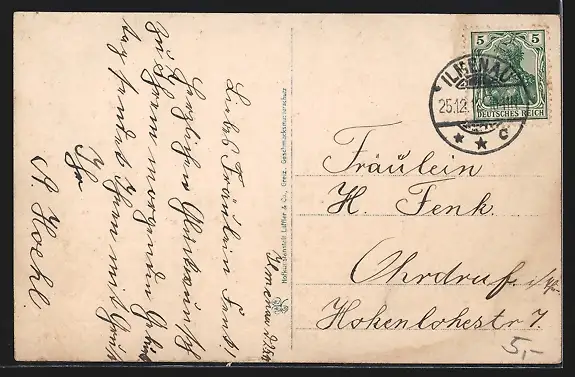 Ilmenau
Liebes Fräulein Fenk!
Herzlichen Glückwunsch
zu Ihrem morgenden Geburts
tag sendet Ihnen mit Gruß
Ihr
A. Hoehl.
Hofkunstanstalt Löffler & Co., Greiz. Geschmacksmusterschutz
5 5
DEUTSCHES REICH
ILMENAU
25.12.
* * c
Fräulein
H. Fenk.
Ohrdruf i/Th.
Hohenlohestr 7.
5,-